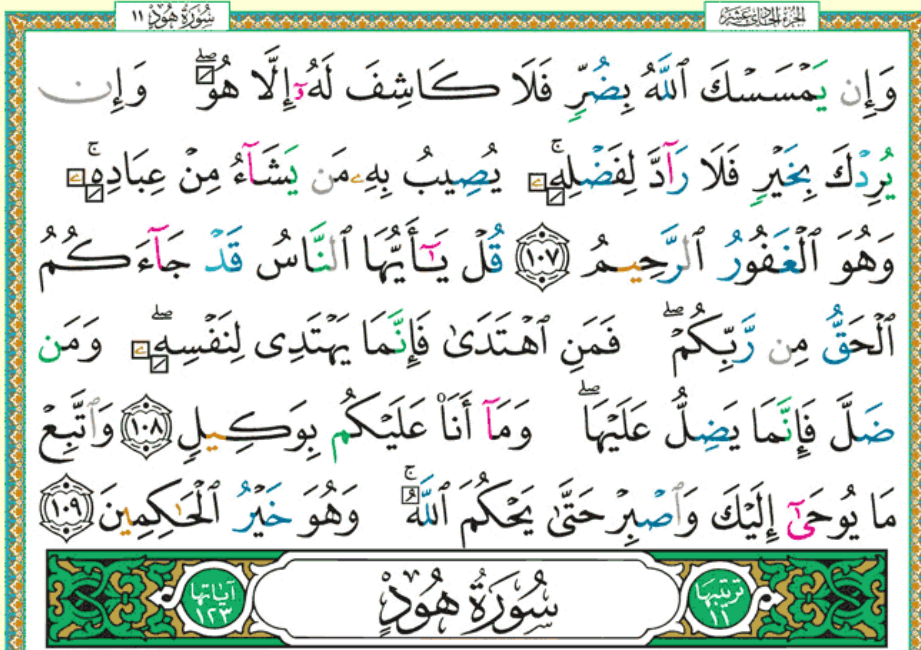 سُورَةُ هُودٍ ١١
الجُزْءُ الحَادِي عَشَر
وَإِن يَمْسَسْكَ ٱللَّهُ بِضُرٍّ فَلَا كَاشِفَ لَهُۥٓ إِلَّا هُوَ ۖ وَإِن
يُرِدْكَ بِخَيْرٍ فَلَا رَآدَّ لِفَضْلِهِۦ ۚ يُصِيبُ بِهِۦ مَن يَشَآءُ مِنْ عِبَادِهِۦ ۚ
وَهُوَ ٱلْغَفُورُ ٱلرَّحِيمُ ١٠٧ قُلْ يَـٰٓأَيُّهَا ٱلنَّاسُ قَدْ جَآءَكُمُ
ٱلْحَقُّ مِن رَّبِّكُمْ ۖ فَمَنِ ٱهْتَدَىٰ فَإِنَّمَا يَهْتَدِى لِنَفْسِهِۦ ۖ وَمَن
ضَلَّ فَإِنَّمَا يَضِلُّ عَلَيْهَا ۖ وَمَآ أَنَا۠ عَلَيْكُم بِوَكِيلٍ ١٠٨ وَٱتَّبِعْ
مَا يُوحَىٰٓ إِلَيْكَ وَٱصْبِرْ حَتَّىٰ يَحْكُمَ ٱللَّهُ ۚ وَهُوَ خَيْرُ ٱلْحَـٰكِمِينَ ١٠٩
ترتيبها
١١
سُورَةُ هُودٍ
آياتها
١٢٣